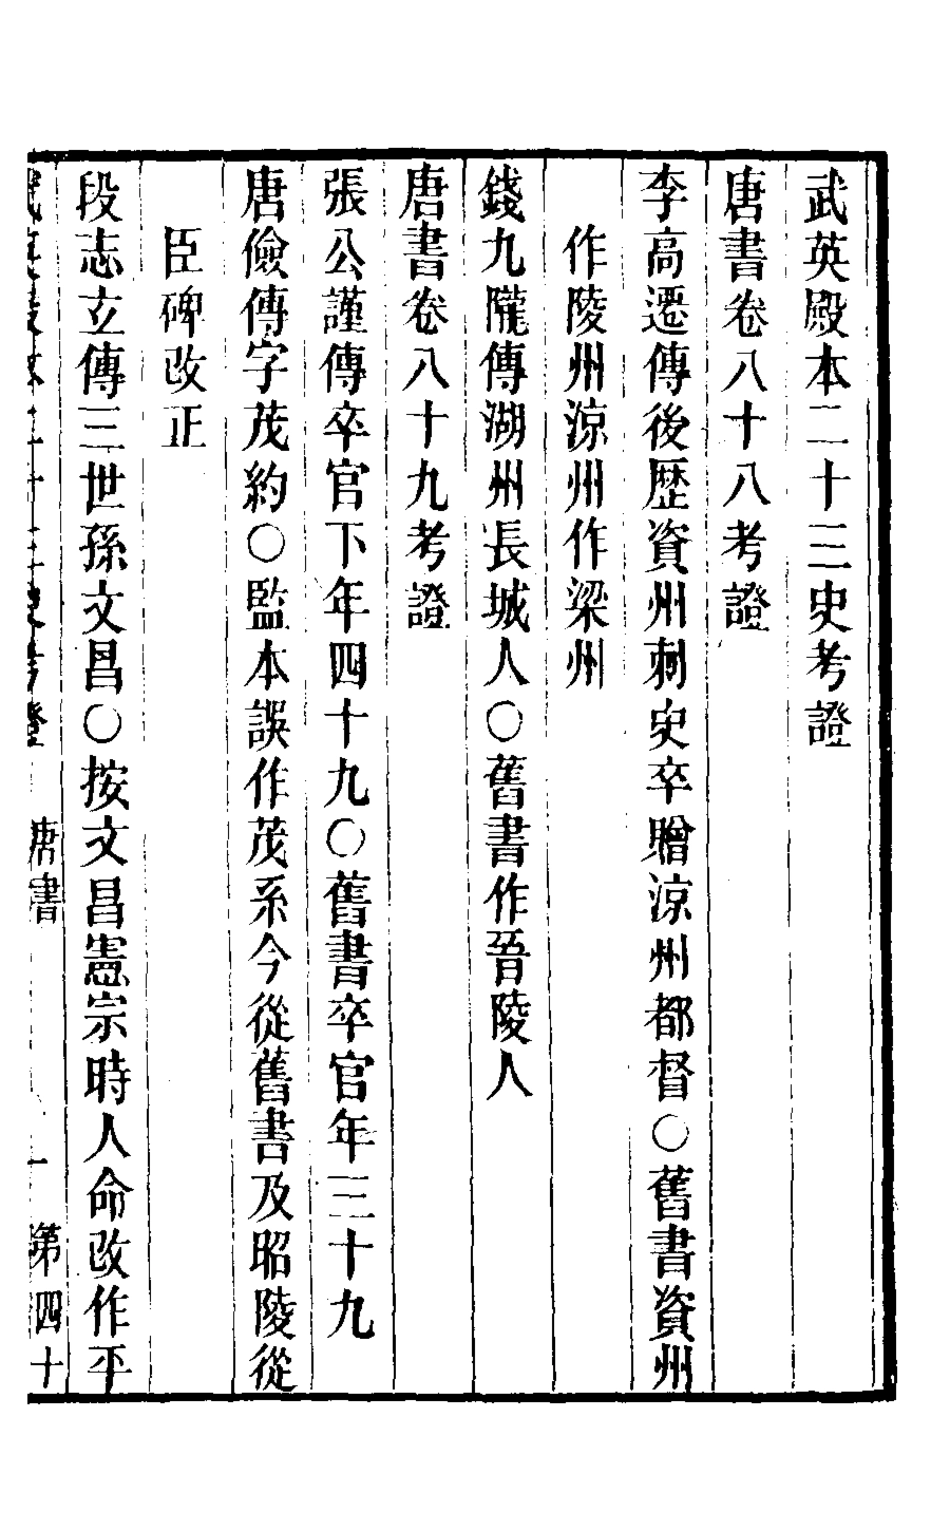 武英殿本二十三史考證
唐書卷八十八考證
李高遷傳後歷資州刺史卒贈涼州都督○舊書資州
作陵州涼州作梁州
錢九隴傳湖州長城人○舊書作晉陵人
唐書卷八十九考證
張公謹傳卒官下年四十九○舊書卒官年三十九
唐儉傳字茂約○監本誤作茂系今從舊書及昭陵從
臣碑改正
段志玄傳三世孫文昌○按文昌憲宗時人命改作平
武英殿本二十三史考證 唐書 一 第四十